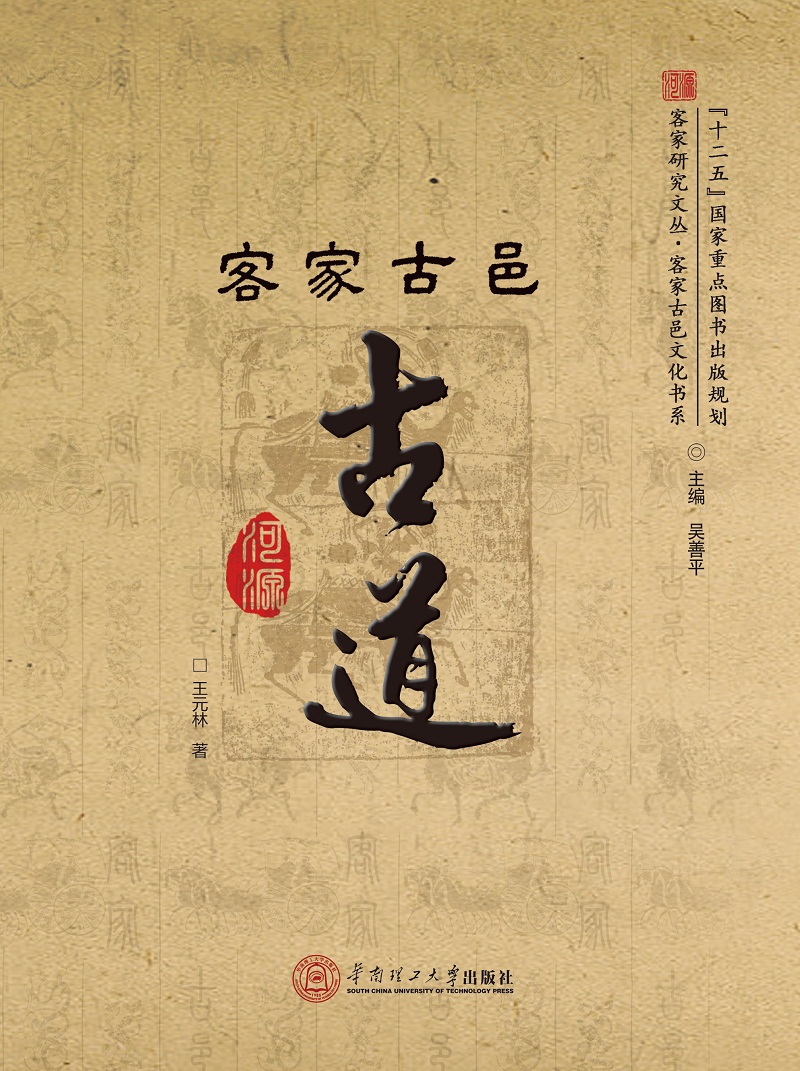 河源
『十二五』国家重点图书出版规划
客家研究文丛·客家古邑文化书系
◎主编 吴善平
客家古邑
古道
河源
□王元林 著
華南理工大学出版社
SOUTH CHINA UNIVERSITY OF TECHNOLOGY PRESS